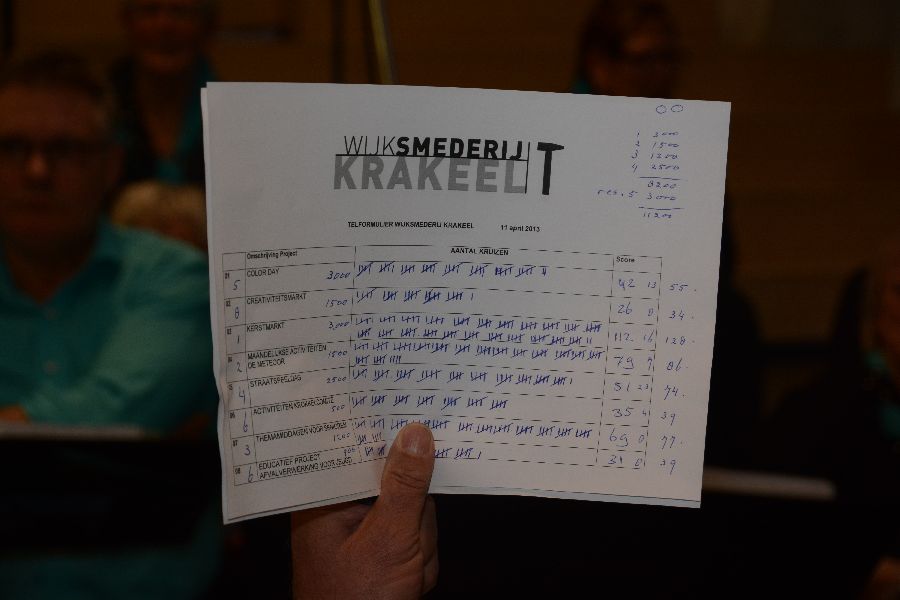 WIJKSMEDERIJ
KRAKEELIT
1 3000
2 1500
3 1200
4 2500
8200
res. 5 3000
11200
TELFORMULIER WIJKSMEDERIJ KRAKEEL 11 april 2013
Omschrijving Project AANTAL KRUIZEN Score
01 COLOR DAY 3000 42 13 55
5
02 CREATIVITEITSMARKT 1500 26 8 34
8
03 KERSTMARKT 3000 112 16 128
1
04 MAANDELIJKSE ACTIVITEITEN 1500 79 7 86
2 DE METEOOR
05 STRAATSPEELDAG 2500 51 23 74
4
06 ACTIVITEITEN 500 35 4 39
6
07 THEMAMIDDAGEN VOOR SENIOREN 1200 69 8 77
3
08 EDUCATIEF PROJECT 31 8 39
6 AFVALVERWERKING VOOR